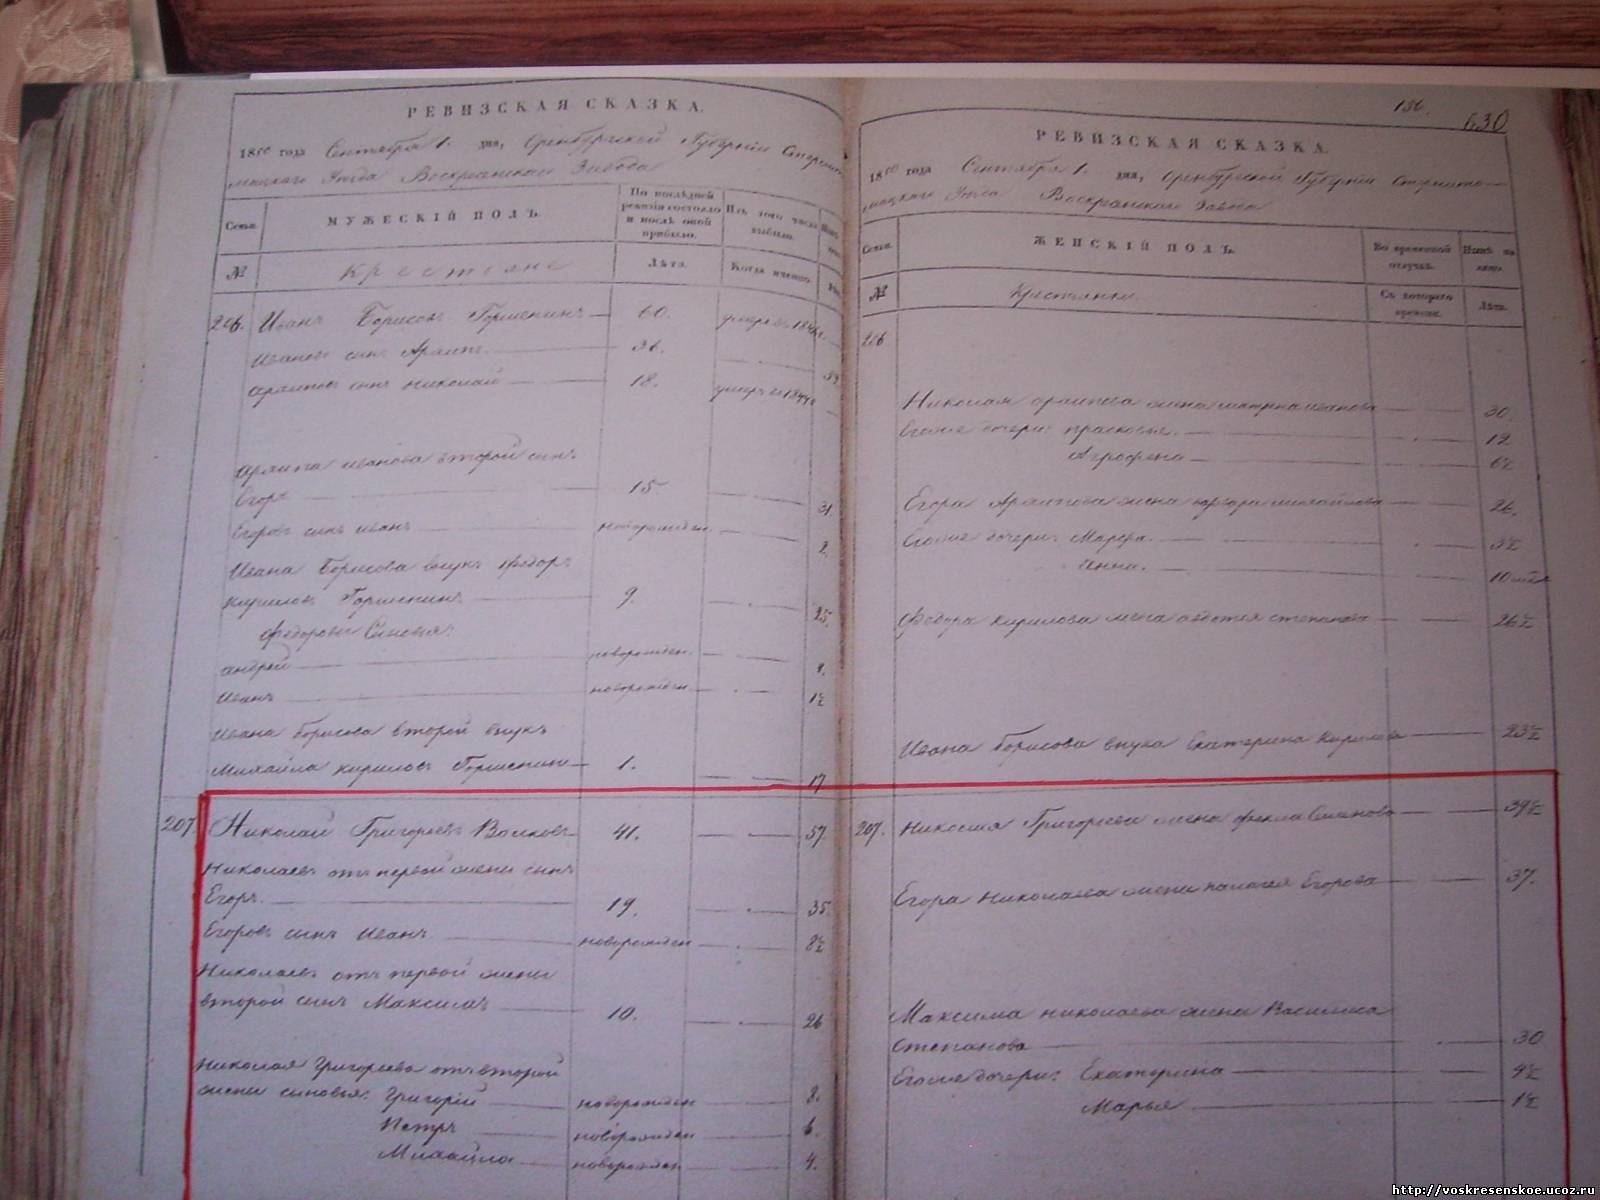 РЕВИЗСКАЯ СКАЗКА.
1850 года Сентября 1. дня, Оренбургской Губернии Стерли
тамацкаго Уезда Воскресенскаго Завода
Семьи. МУЖЕСКІЙ ПОЛЪ. По послѣдней ревизіи состояло и послѣ оной прибыло. Изъ того числа выбыло.
№ Крестьяне Лѣта. Когда именно.
206. Иванъ Борисовъ 60. умеръ въ
Ивановъ сынъ Архипъ 36.
Архиповъ сынъ Николай 18. умеръ въ 1844
Архипа Иванова второй сынъ
Егоръ 15. 31.
Егоровъ сынъ Иванъ новорожден. 2.
Ивана Борисова внукъ Федоръ
Кириловъ 9. 25.
Федоровы Сыновья:
Андрей новорожден.
Иванъ новорожден. 1½
Ивана Борисова второй внукъ
Михайла Кириловъ 1. 17
207. Николай Григорьевъ Волковъ 41. 57
Николаевъ отъ первой жены сынъ
Егоръ. 19. 35.
Егоровъ сынъ Иванъ новорожден 8½
Николаевъ отъ первой жены
второй сынъ Максимъ 10. 26
Николая Григорьева отъ второй
жены сыновья: Григорій новорожден 8.
Петръ новорожден 6.
Михайла новорожден 4.
136. 630
РЕВИЗСКАЯ СКАЗКА.
1850 года Сентября 1. дня, Оренбургской Губерніи Стерлита-
мацкаго Уезда Воскресенскаго Завода
Семьи. ЖЕНСКІЙ ПОЛЪ. Во временной отлучкѣ. Нынѣ на лицо.
№ Крестьянки. Съ котораго времени. Лѣта.
206
Николая Архипова жена Иванова 30.
Его же дочери: Прасковья. 12
Агрофена 6½
Егора Архипова жена Варвара Михайлова 26.
Его же дочери: Марфа. 3½
Анна. 10
Федора Кирилова жена Авдотья Степанова 26½
Ивана Борисова внука Екатерина Кирилова 23½
207. Николая Григорьева жена Фекла Семенова 39½
Егора Николаева жена Палагея Егорова 37.
Максима Николаева жена Василиса
Степанова 30
Его же дочери: Екатерина 4½
Марья 1½
http://voskresenskoe.ucoz.ru